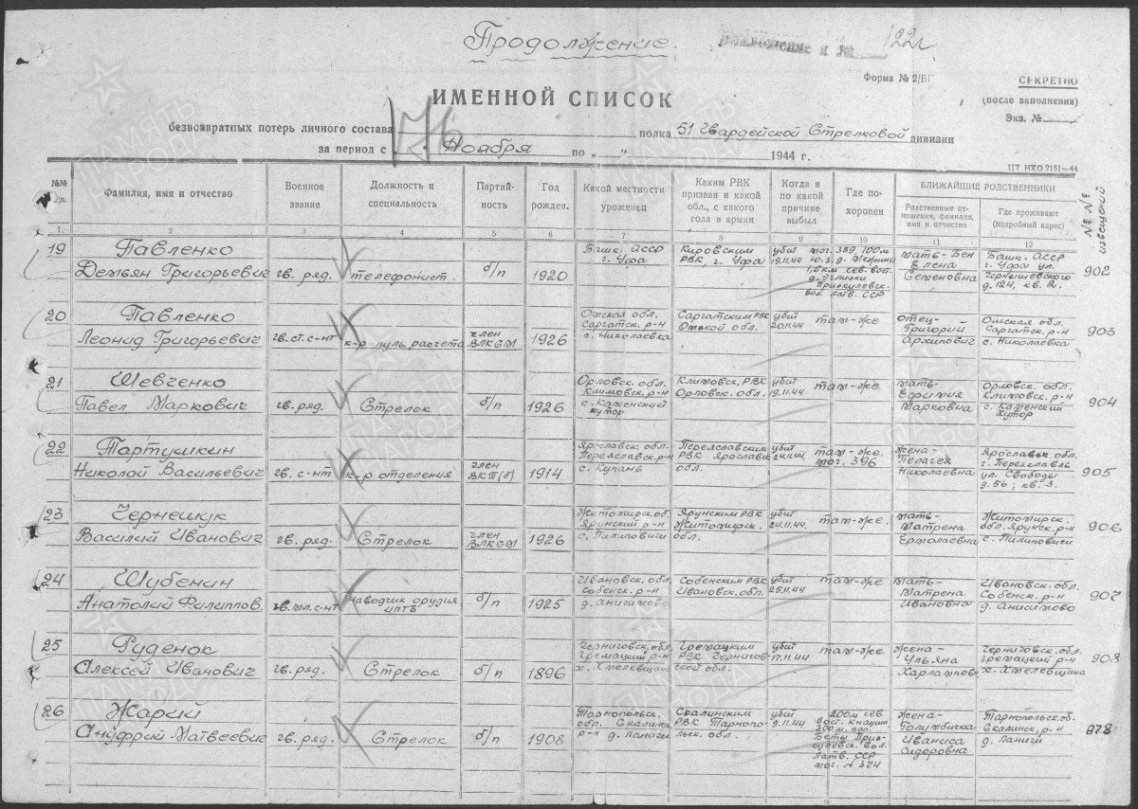 Продолжение.
122л
Форма № 2/БП
СЕКРЕТНО
(после заполнения)
Экз. №
ИМЕННОЙ СПИСОК
безвозвратных потерь личного состава полка 51 Гвардейской Стрелковой дивизии
за период с Ноября по „ “ 1944 г.
№№ Фамилия, имя и отчество Военное звание Должность и специальность Партийность Год рожден. Какой местности уроженец Каким РВК призван и какой обл., с какого года в армии Когда и по какой причине выбыл Где похоронен БЛИЖАЙШИЕ РОДСТВЕННИКИ
Родственные отношения, фамилия, имя и отчество Где проживают (подробный адрес) №№ извещений
1 2 3 4 5 6 7 8 9 10 11 12
19 Павленко Башк. АССР Кировским убит мог. 389, 100м мать- Башк. АССР
Демьян Григорьевич гв. ряд. телефонист. б/п 1920 г. Уфа РВК, г. Уфа 19.11.44 Елена Семеновна г. Уфа ул. Чернышевского д. 124, кв. 2. 902
20 Павленко Омская обл. Саргатским РВК убит там-же отец- Омская обл.
Леонид Григорьевич гв. ст. с-нт к-р пуль. расчета член ВЛКСМ 1926 Саргатск. р-н с. Николаевка Омской обл. 20.11.44 Григорий Архипович Саргатск. р-н с. Николаевка 903
21 Шевченко Орловск. обл. Климовск. РВК убит там-же мать- Орловск. обл.
Павел Маркович гв. ряд. Стрелок б/п 1926 Климовск. р-н с. Каменский хутор Орловск. обл. 19.11.44 Марковна Климовск. р-н с. Каменский хутор 904
22 Тартушкин Ярославск. обл. Переяславским убит там-же. жена- Ярославск. обл.
Николай Васильевич гв. с-нт к-р отделения член ВКП(б) 1914 Переяславск. р-н с. Купань РВК Ярославск. обл. мог. 396 Пелагея Николаевна г. Переяславль ул. Свободы д. 56; кв. 3. 905
23 Чернешук Житомирск. об. Ярунским РВК убит там-же. мать- Житомирск.
Василий Иванович гв. ряд. Стрелок член ВЛКСМ 1926 Ярунский р-н с. Пилиповичи Житомирск. обл. 20.11.44 Матрена Ермолаевна обл. Ярунск. р-н с. Пилиповичи 906
24 Шубенин Ивановск. обл. Собенским РВК убит там-же мать- Ивановск. обл.
Анатолий Филиппов. гв. мл. с-нт наводчик орудия б/п 1925 Собенск. р-н д. Анисимово Ивановск. обл. 25.11.44 Матрена Ивановна Собенск. р-н д. Анисимово 907
25 Руденок Черниговск. обл. Гремацким убит там-же. жена- Черниговск. обл.
Алексей Иванович гв. ряд. Стрелок б/п 1896 Гремацкий р-н х. Хмелевщина РВК Чернигов- ской обл. 17.11.44 Ульяна Гремацкий р-н х. Хмелевщина 908
26 Жарий Тарнопольск. обл. Скалинским убит жена- Тарнопольск. об.
Ануфрий Матвеевич гв. ряд. Стрелок б/п 1908 РВК Тарнопольск. обл. 9.11.44 Латв. ССР мог. № 374 Сидоровна Скалинск. р-н 878